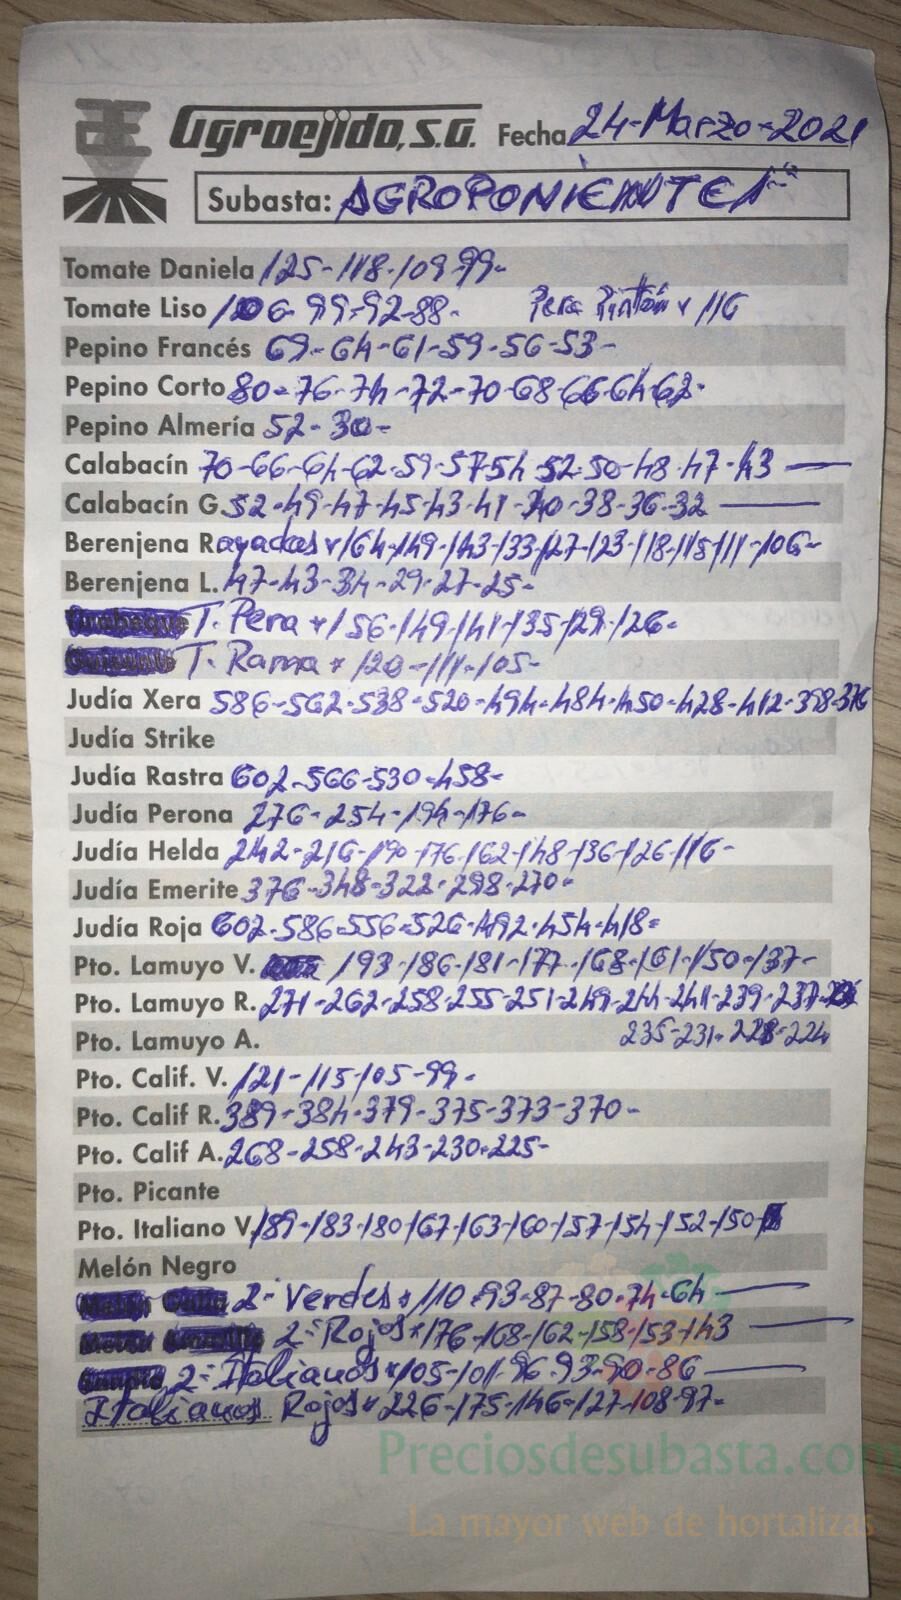 Agroejido, S.A. Fecha 24-Marzo-2021
Subasta: AGROPONIENTE
Tomate Daniela 125-118-109-99-
Tomate Liso 106-99-92-88- Pera Pintón 116
Pepino Francés 69-64-61-59-56-53-
Pepino Corto 80-76-74-72-70-68-66-64-62-
Pepino Almería 52-30-
Calabacín 70-66-64-62-59-57-54-52-50-48-47-43
Calabacín G. 52-49-47-45-43-41-40-38-36-32
Berenjena Rayadas 164-149-143-133-127-123-118-115-111-106-
Berenjena L. 47-43-34-29-27-25-
T. Pera 156-149-141-135-129-126-
T. Rama 120-111-105-
Judía Xera 586-562-538-520-494-484-450-428-412-398-376
Judía Strike
Judía Rastra 602-566-530-458-
Judía Perona 276-254-194-176-
Judía Helda 242-216-190-176-162-148-136-126-116-
Judía Emerite 376-348-322-298-270-
Judía Roja 602-586-556-526-492-454-418-
Pto. Lamuyo V. 193-186-181-177-168-161-150-137-
Pto. Lamuyo R. 271-262-258-255-251-249-244-241-239-237-
Pto. Lamuyo A. 235-231-228-224
Pto. Calif. V. 121-115-105-99-
Pto. Calif R. 389-384-379-375-373-370-
Pto. Calif A. 268-258-243-230-225-
Pto. Picante
Pto. Italiano V. 189-183-180-167-163-160-157-154-152-150
Melón Negro
2ª Verdes 110-93-87-80-74-64
2ª Rojos 176-168-162-158-153-143
2ª Italianos 105-101-96-93-90-86
Italianos Rojos 226-175-146-127-108-97-
Preciosdesubasta.com
La mayor web de hortalizas